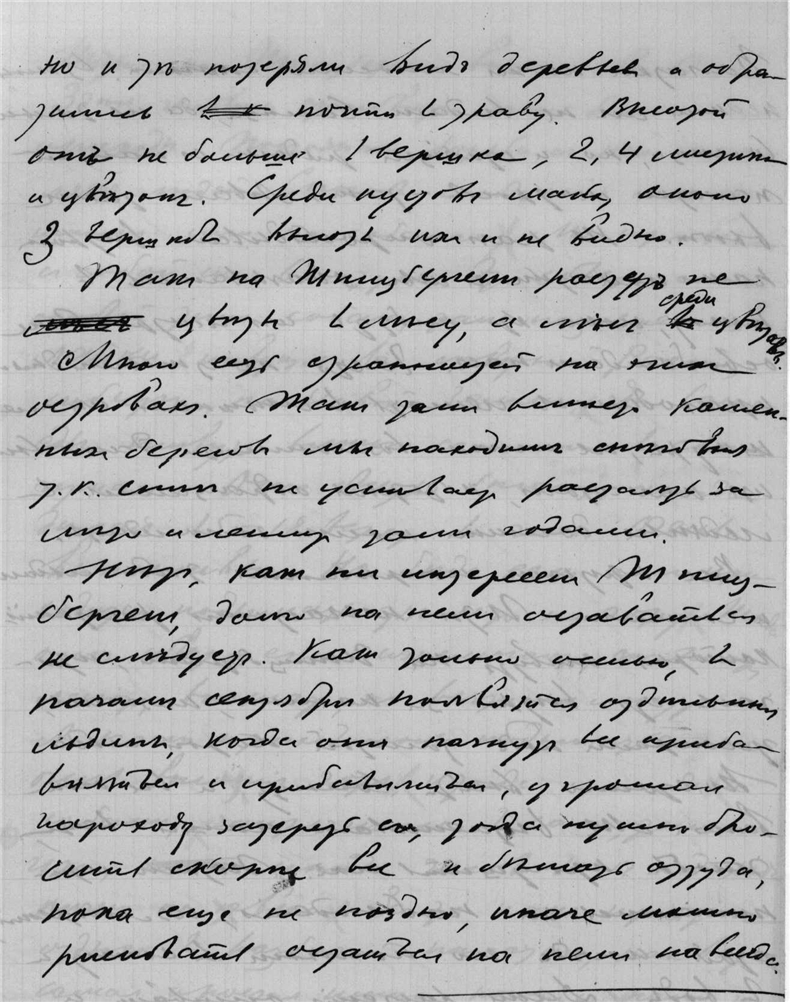 но и те потеряли видъ деревьев и обра-
тились в к почти в траву. Высотой
онѣ не больше 1 вершка, 2, 4 листика
и цвѣток. Среди кустов мака, около
3 вершков высоты их и не видно.
Так на Шпицбергене растут не
цвѣты в лѣсу, а лѣс среди в цвѣтов.
Много есть странностей на этих
островах. Так там вблизи камен-
ных берегов мы находим снеговыя
т.к. снѣг не успѣвает растаять за
лѣто и лежит там годами.
Нѣт, как ни интересен Шпиц-
берген, долго на нем оставаться
не слѣдует. Как только осенью, в
начале сентября появятся отдѣльныя
льдины, когда онѣ начнут все приба-
вляться и прибавляться, угрожая
пароходу затереть его, тогда нужно бро-
сить скорѣе все и бѣжать оттуда,
пока еще не поздно, иначе можно
рисковать остаться на нем навсегда.